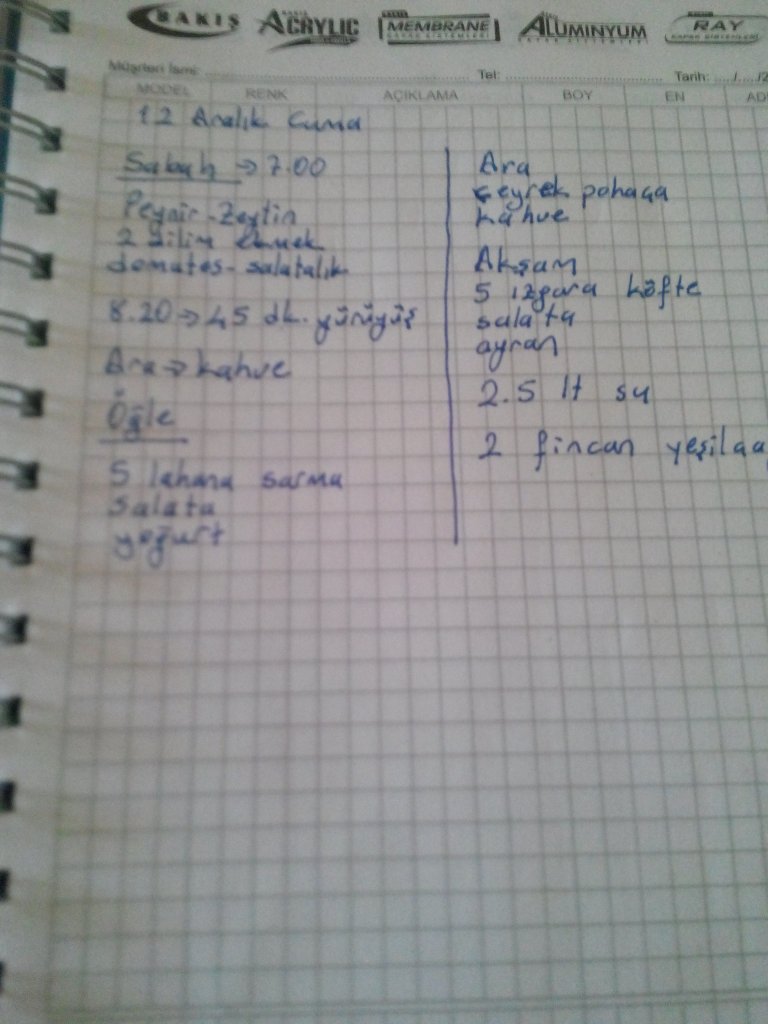 BAKIŞ
ACRYLIC
MEMBRANE
KAPAK SİSTEMLERİ
ALUMINYUM
KAPAK SİSTEMLERİ
RAY
KAPAK SİSTEMLERİ
Müşteri İsmi: Tel: Tarih: ..../..../2
MODEL RENK AÇIKLAMA BOY EN AD
12 Aralık Cuma
Sabah → 7.00
Peynir-Zeytin
2 dilim ekmek
domates-salatalık
8.20 → 45 dk. yürüyüş
Ara → kahve
Öğle
5 lahana sarma
salata
yoğurt
Ara
çeyrek pohaça
kahve
Akşam
5 ızgara köfte
salata
ayran
2.5 lt su
2 fincan